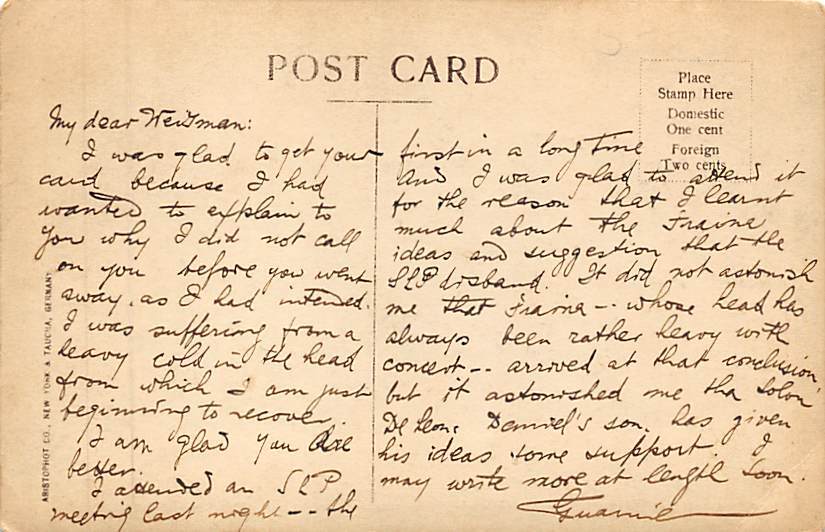 POST CARD
Place
Stamp Here
Domestic
One cent
Foreign
Two cents
ARISTOPHOT CO., NEW YORK & TAUCHA, GERMANY
My dear Weitzman:
I was glad to get your
card because I had
wanted to explain to
you why I did not call
on you before you went
away, as I had intended.
I was suffering from a
heavy cold in the head
from which I am just
beginning to recover.
I am glad you are
better.
I attended an SLP
meeting last night -- the
first in a long time
And I was glad to attend it
for the reason that I learnt
much about the Fraina
ideas and suggestion that the
SLP disband. It did not astonish
me that Fraina -- whose head has
always been rather heavy with
conceit -- arrived at that conclusion,
but it astonished me tha Solon
De Leon, Daniel's son, has given
his ideas some support. I
may write more at length soon.